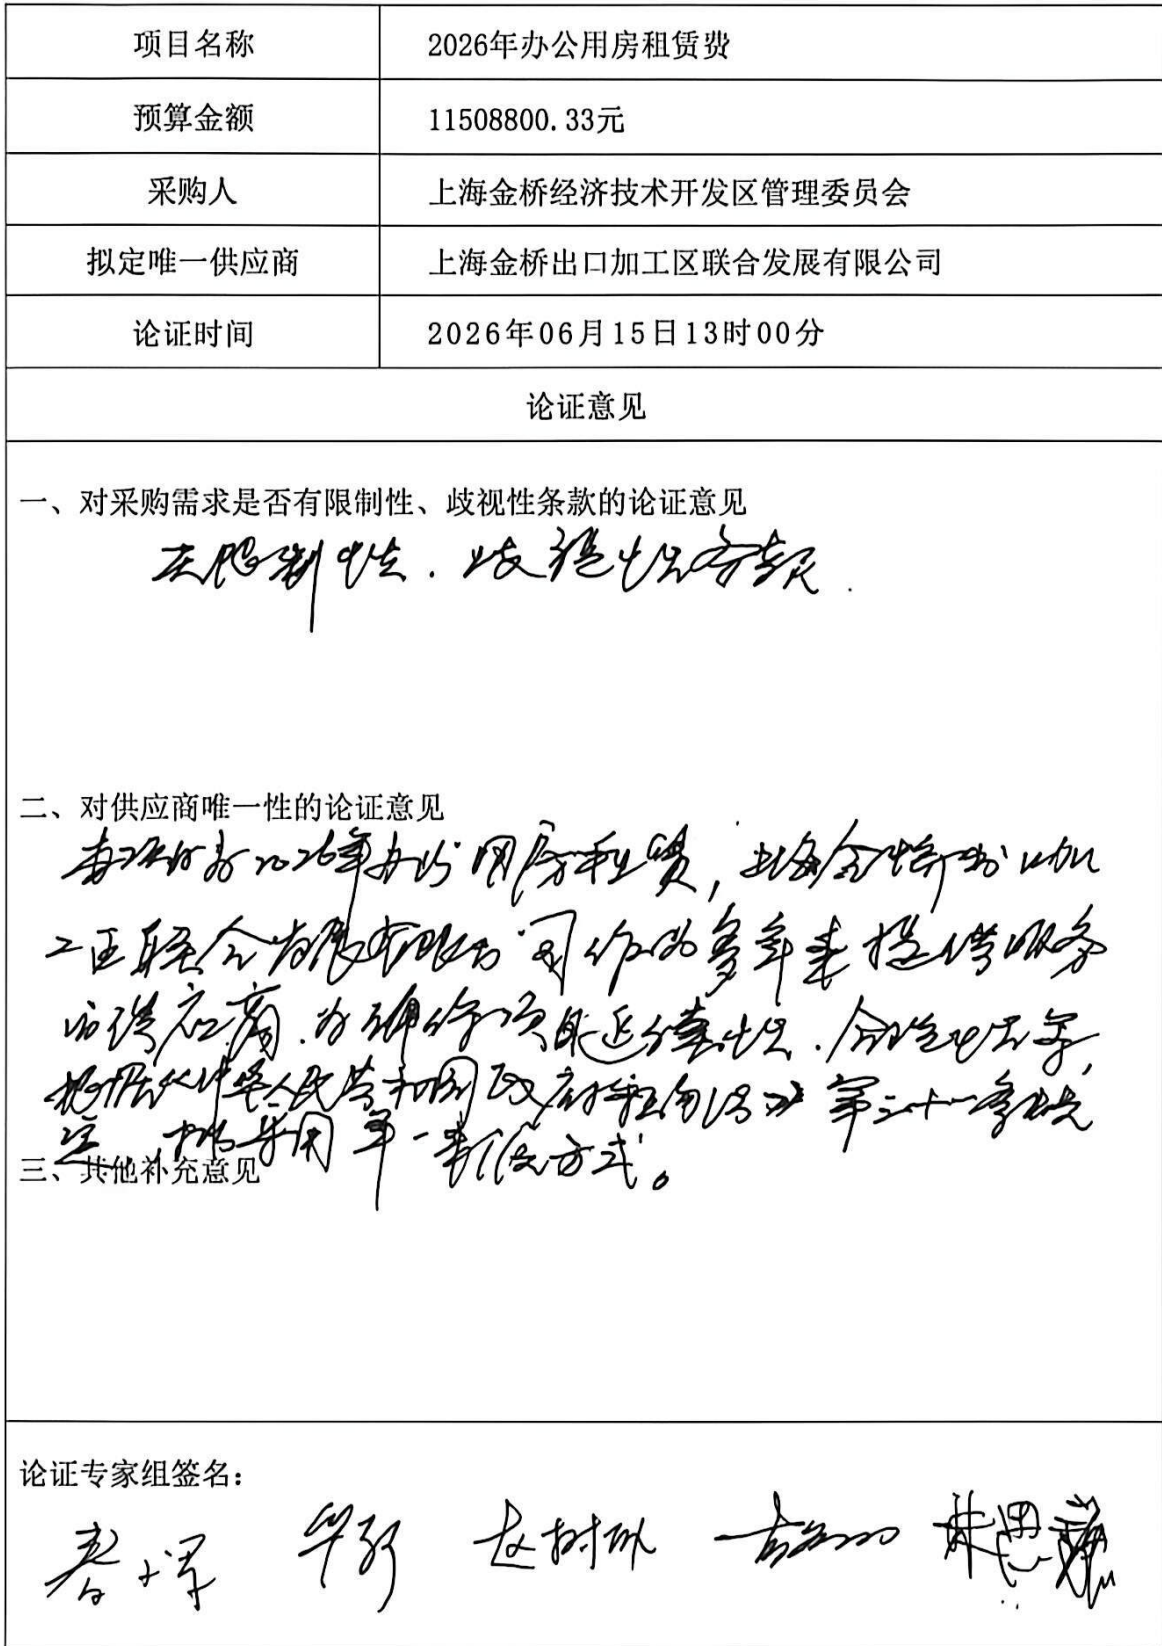 项目名称 2026年办公用房租赁费
预算金额 11508800.33元
采购人 上海金桥经济技术开发区管理委员会
拟定唯一供应商 上海金桥出口加工区联合发展有限公司
论证时间 2026年06月15日13时00分
论证意见
一、对采购需求是否有限制性、歧视性条款的论证意见
无限制性、歧视性条款.
二、对供应商唯一性的论证意见
2026年办公用房租赁费,上海金桥出口加
工区联合发展有限公司作为多年来提供服务
的供应商.为确保项目延续性.
根据《中华人民共和国政府采购法》第三十一条规
定,采用单一来源方式。
三、其他补充意见
论证专家组签名: